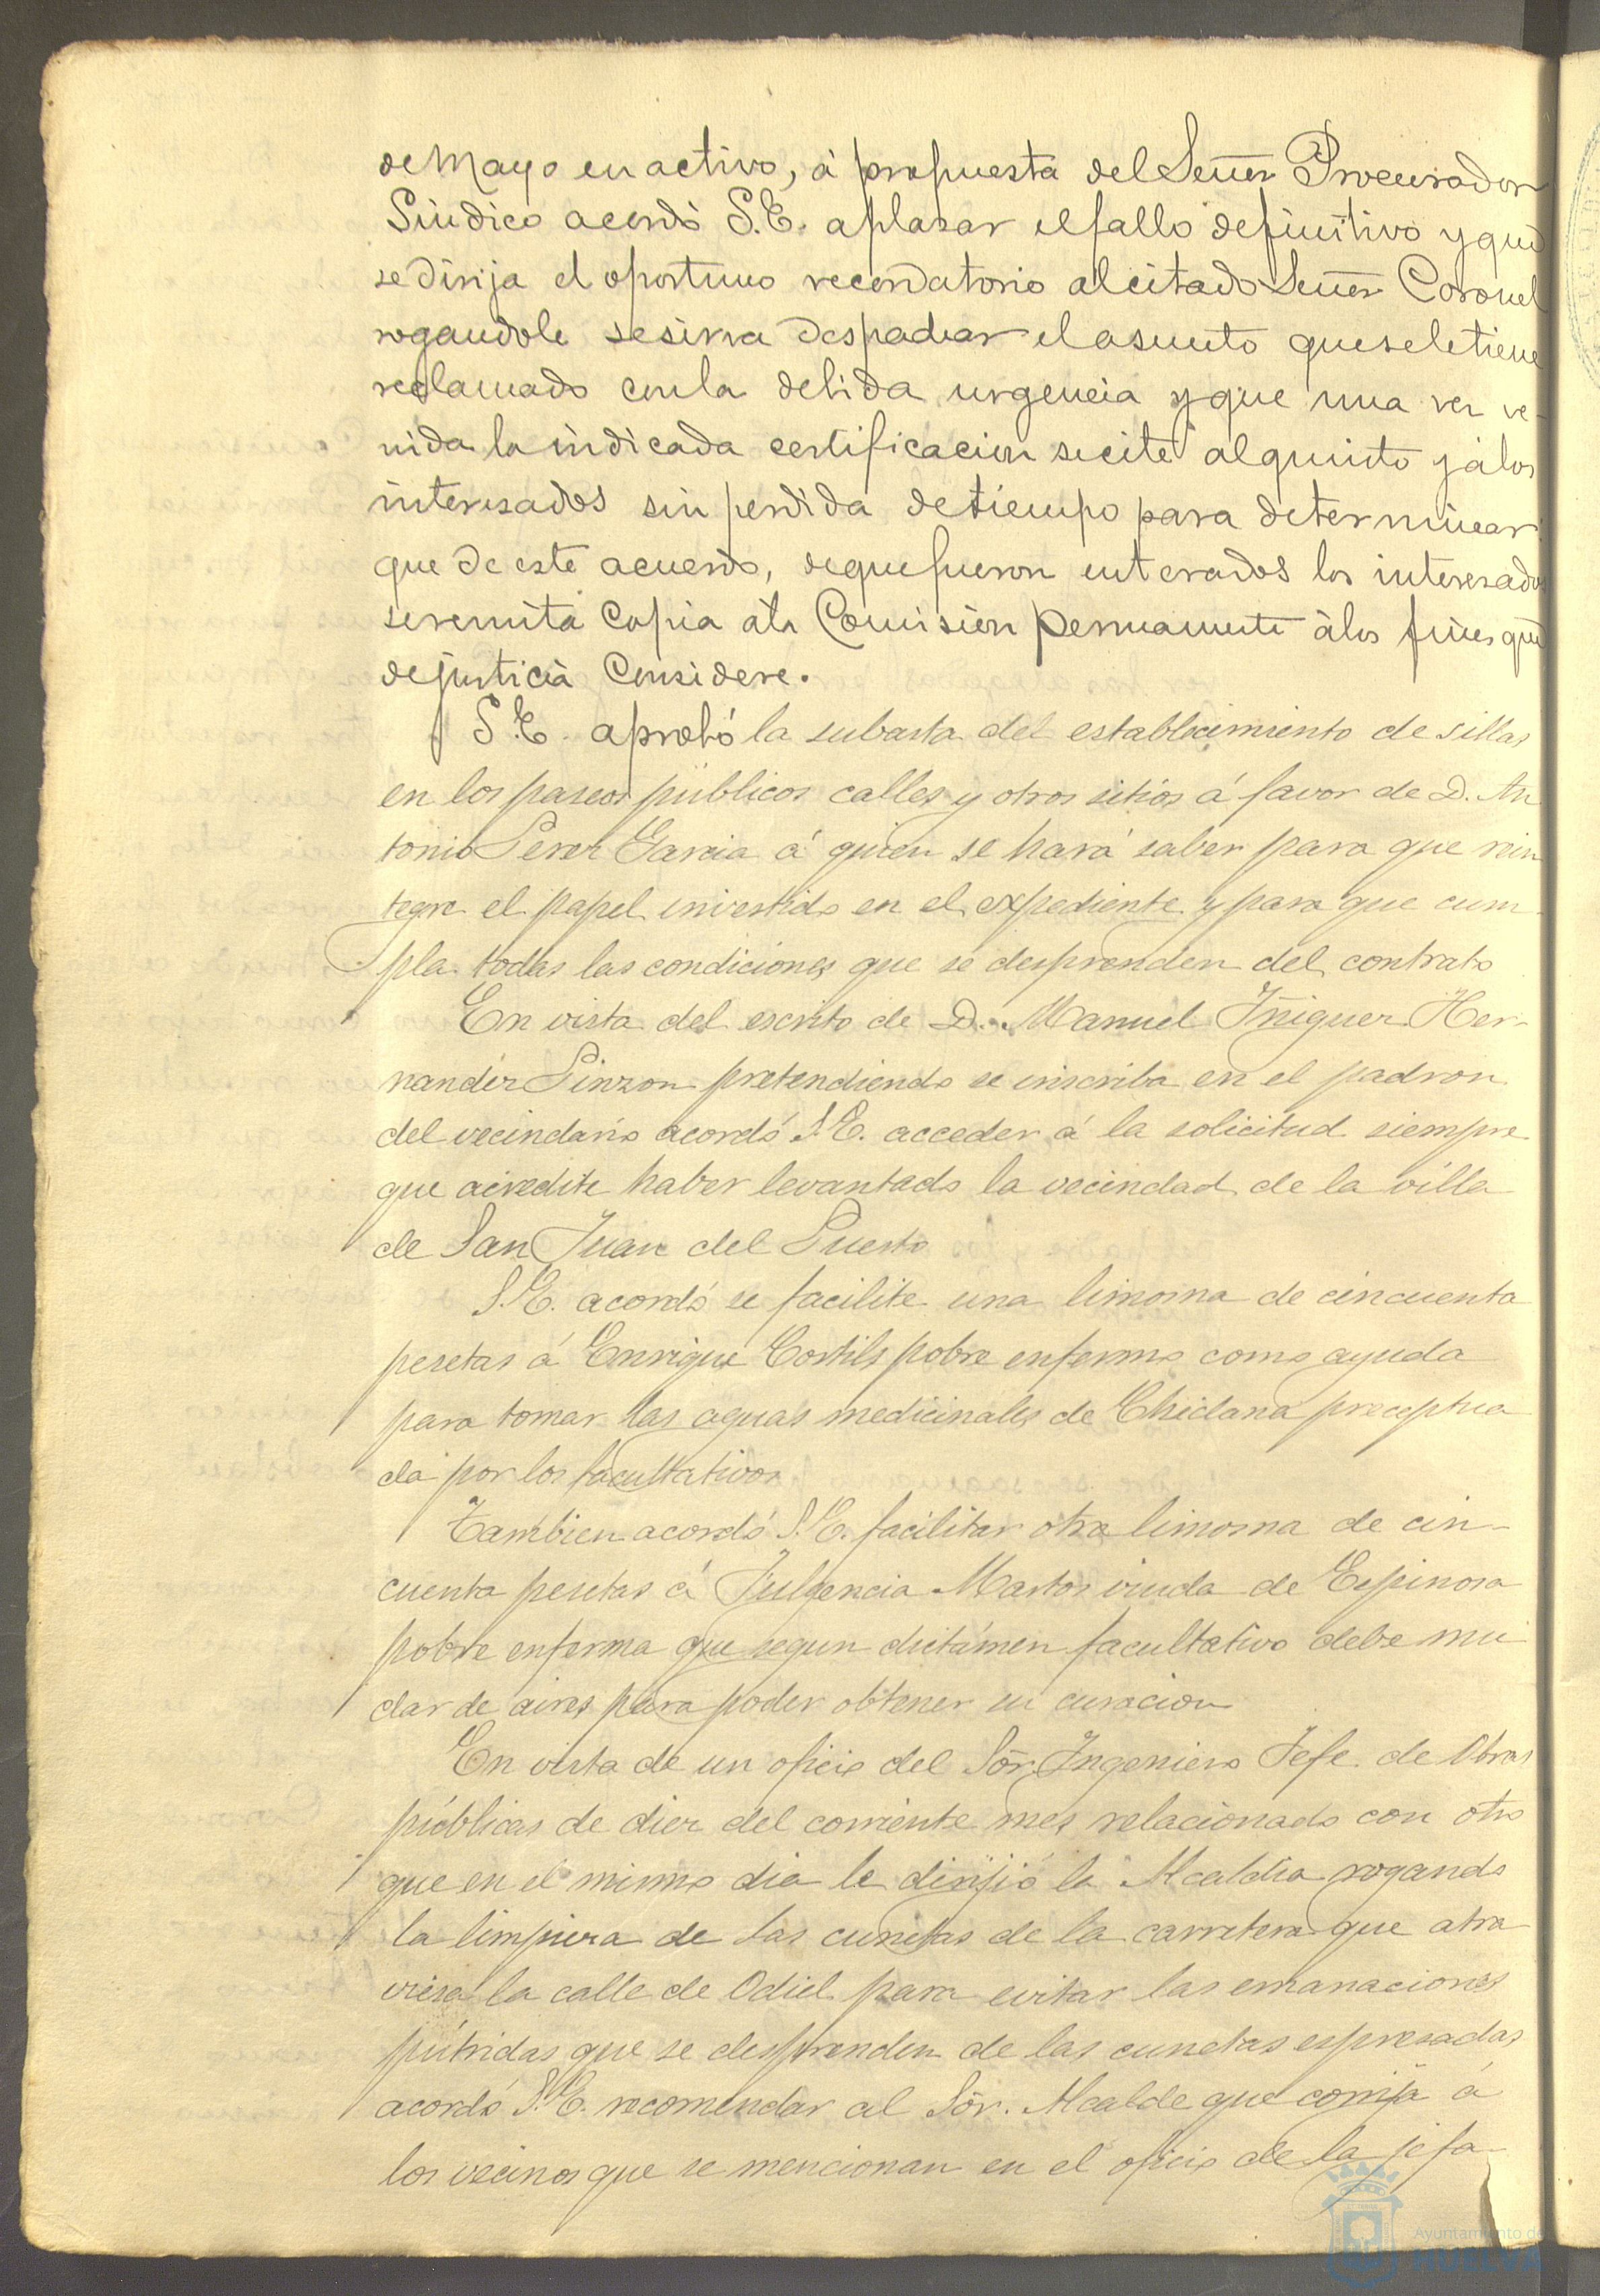 de Mayo en activo, á propuesta del Señor Procurador
Síndico acordó S.E. aplazar el fallo definitivo y que
se dirija el oportuno recordatorio al citado Señor Coronel
rogandole se sirva despachar el asunto que se le tiene
reclamado con la debida urgencia y que una vez ve-
nida la indicada certificacion se cite al quinto y á los
interesados sin perdida de tiempo para determinar:
que de este acuerdo, de que fueron enterados los interesados
se remita copia á la Comision permanente á los fines que
de justicia considere.
S.E. aprobó la subasta del establecimiento de sillas
en los paseos públicos calles y otros sitios á favor de D. An
tonio Perez Garcia á quien se hará saber para que rein
tegre el papel invertido en el expediente y para que cum-
pla todas las condiciones que se desprenden del contrato
En vista del escrito de D. Manuel Iñiguez Her-
nandez Pinzon pretendiendo se inscriba en el padron
del vecindario acordó S.E. acceder á la solicitud siempre
que acredite haber levantado la vecindad de la villa
de San Juan del Puerto
S.E. acordó se facilite una limosna de cincuenta
pesetas á Enrique Cortils pobre enfermo como ayuda
para tomar las aguas medicinales de Chiclana preceptua
da por los facultativos
Tambien acordó S.E. facilitar otra limosna de cin-
cuenta pesetas á Fulgencia Martos viuda de Espinosa
pobre enferma que segun dictámen facultativo debe mu
dar de aires para poder obtener su curacion
En vista de un oficio del Sõr. Ingeniero Jefe de Obras
públicas de diez del corriente mes relacionado con otro
que en el mismo dia le dirijió la Alcaldia rogando
la limpieza de las cunetas de la carretera que atra
viesa la calle de Odiel para evitar las emanaciones
pútridas que se desprenden de las cunetas espresadas
acordó S.E. recomendar al Sõr. Alcalde que corrija á
los vecinos que se mencionan en el oficio de la jefa-
Ayuntamiento de
HUELVA